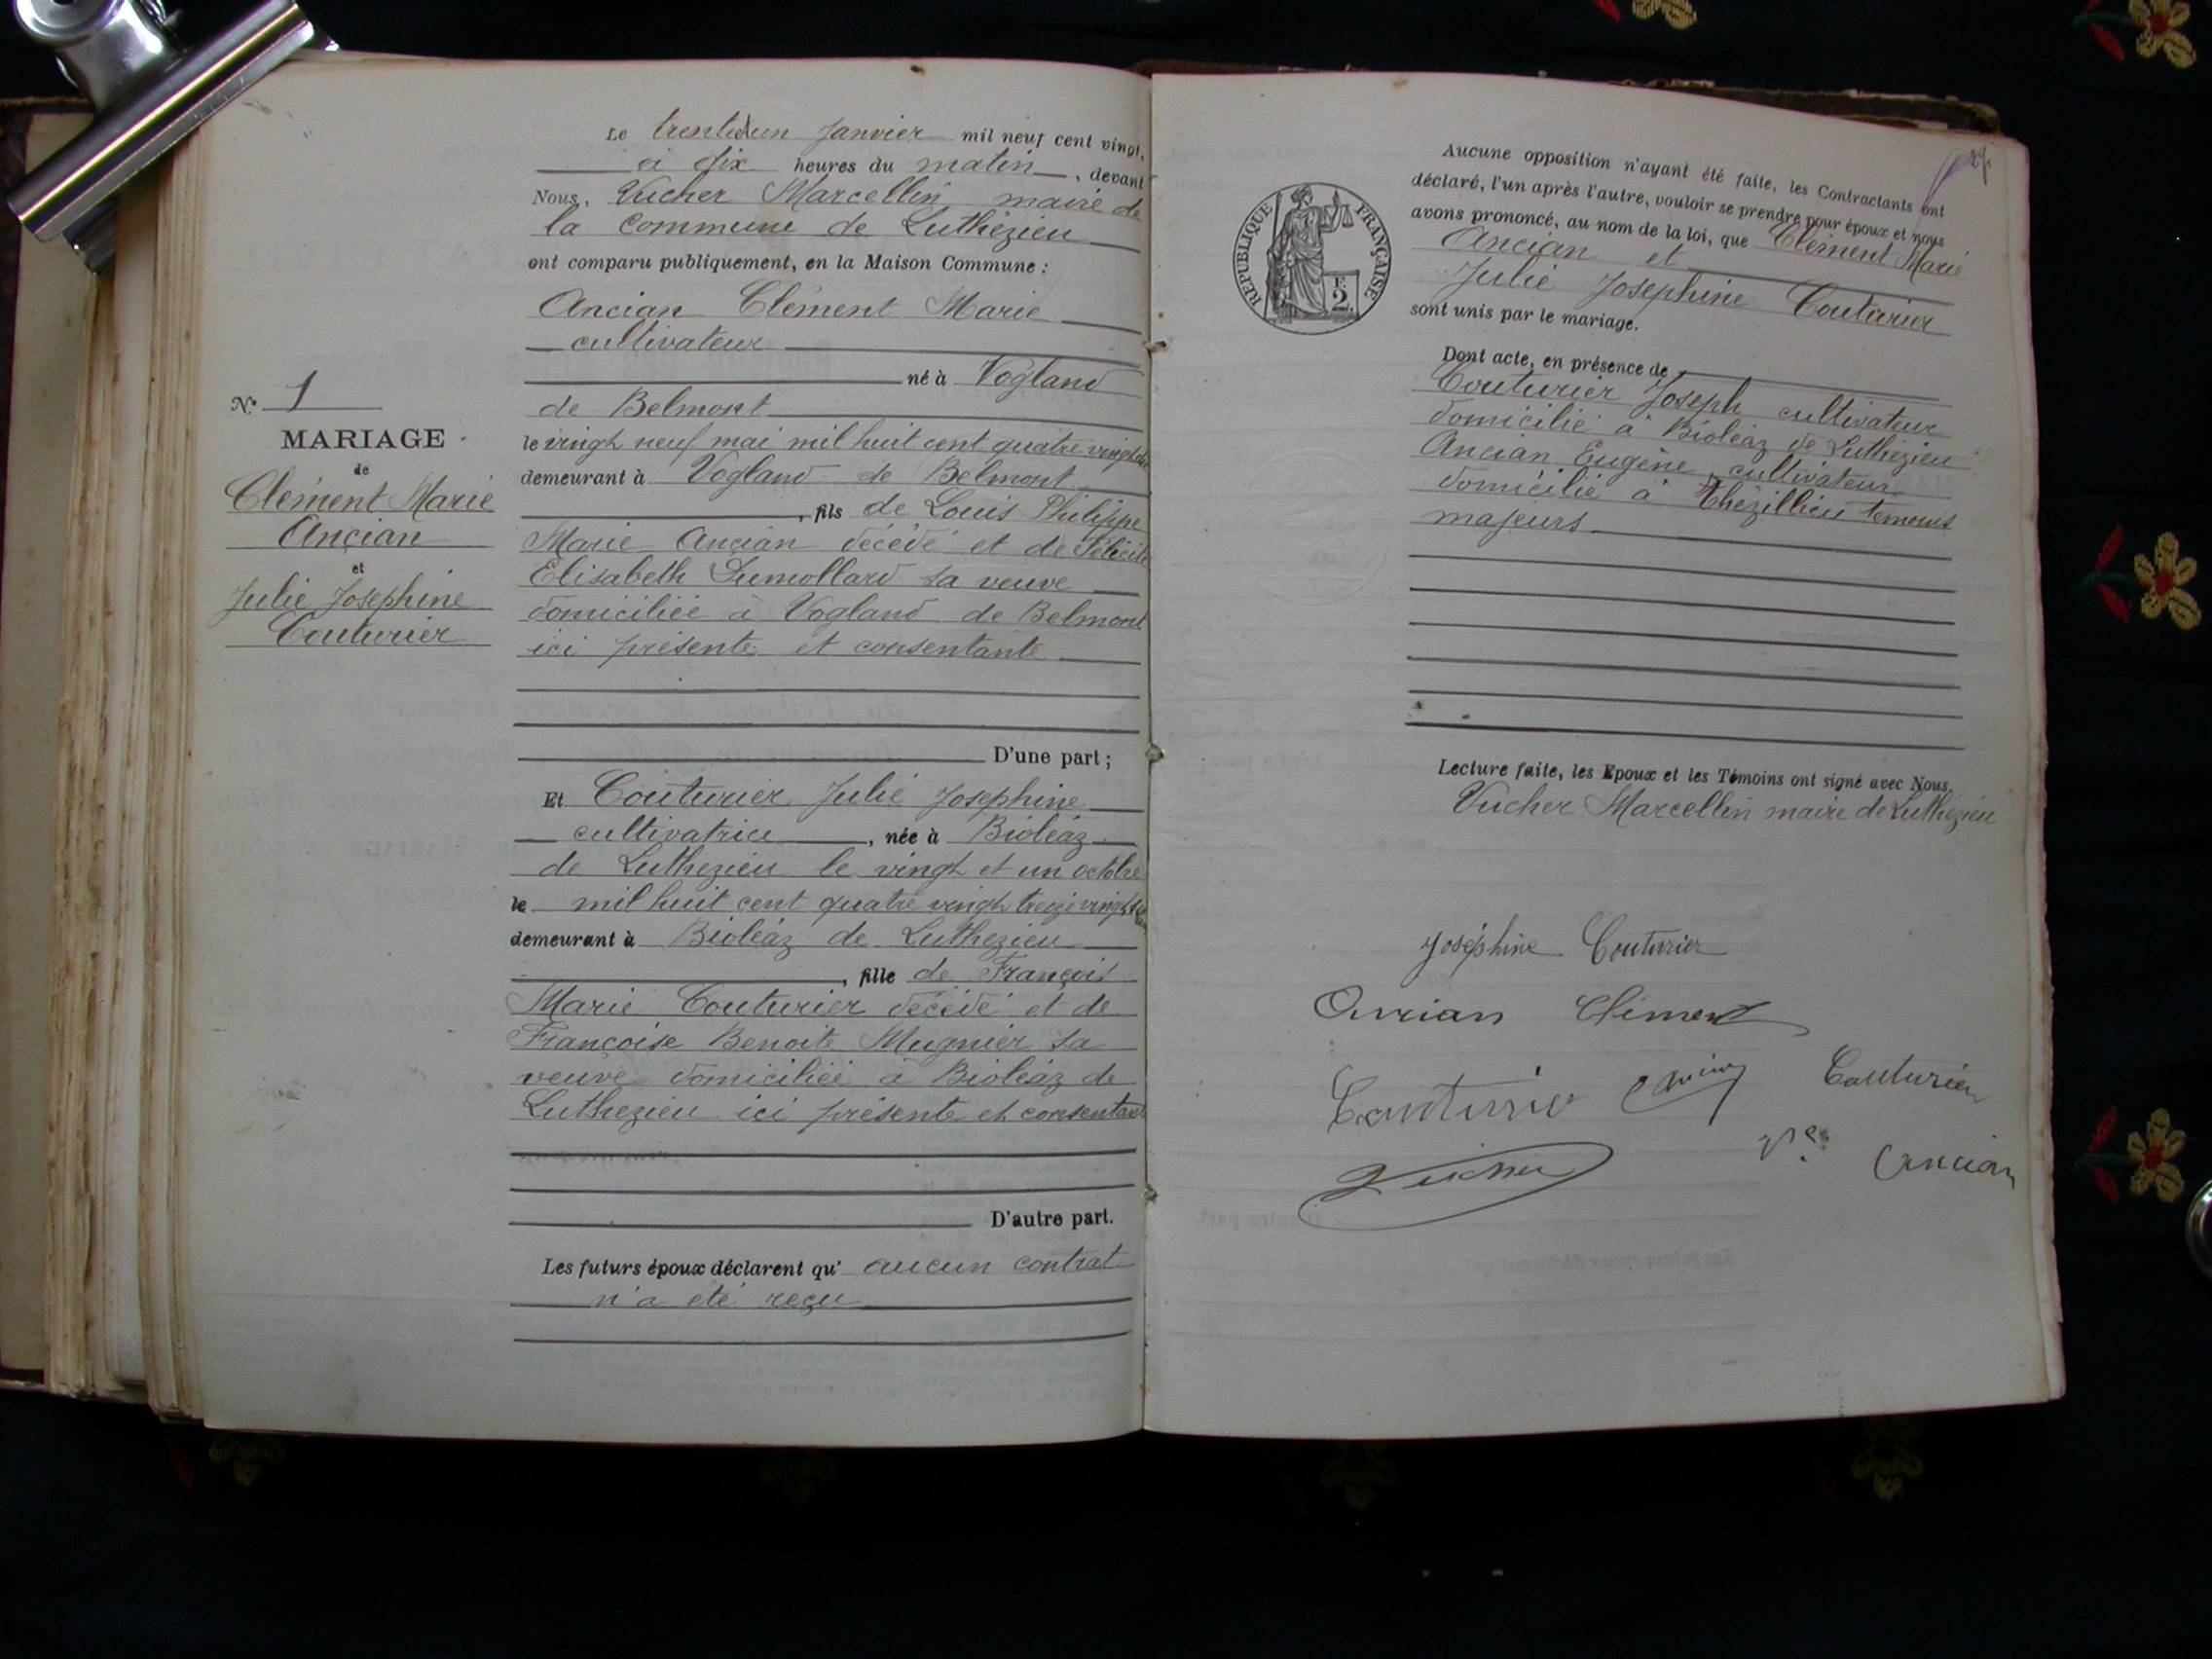 Le trente et un Janvier mil neuf cent vingt,
à dix heures du matin, devant
Nous, Vucher Marcellin maire de
la commune de Luthézieu
ont comparu publiquement, en la Maison Commune :
Ancian Clément Marie
cultivateur
né à Vogland
de Belmont
le vingt neuf mai mil huit cent quatre
demeurant à Vogland de Belmont
, fils de Louis Philippe
Marie Ancian décédé et de Félicité
Elisabeth Dumollard sa veuve
domiciliée à Vogland de Belmont
ici présente et consentante
D'une part ;
N° 1
MARIAGE
de
Clément Marie
Ancian
et
Julie Josephine
Couturier
Et Couturier Julie Josephine
cultivatrice, née à Bioléaz
de Luthezieu le vingt et un octobre
le mil huit cent quatre vingt treize
demeurant à Bioléaz de Luthezieu
, fille de François
Marie Couturier décédé et de
Françoise Benoite Mugnier sa
veuve domiciliée à Bioléaz de
Luthezieu ici présente et consentant
D'autre part.
Les futurs époux déclarent qu' aucun contrat
n'a été reçu
27
RÉPUBLIQUE FRANÇAISE
F.
2
Aucune opposition n'ayant été faite, les Contractants ont
déclaré, l'un après l'autre, vouloir se prendre pour époux et nous
avons prononcé, au nom de la loi, que Clément Marie
Ancian et
Julie Josephine Couturier
sont unis par le mariage.
Dont acte, en présence de
Couturier Joseph cultivateur
domicilié à Bioléaz de Luthézieu
Ancian Eugène, cultivateur
domicilié à Thézillieu témoins
majeurs
Lecture faite, les Epoux et les Témoins ont signé avec Nous,
Vucher Marcellin maire de Luthézieu
Joséphine Couturier
Ancian Clément
Couturier Ancian Couturier
Vve Ancian
Vucher